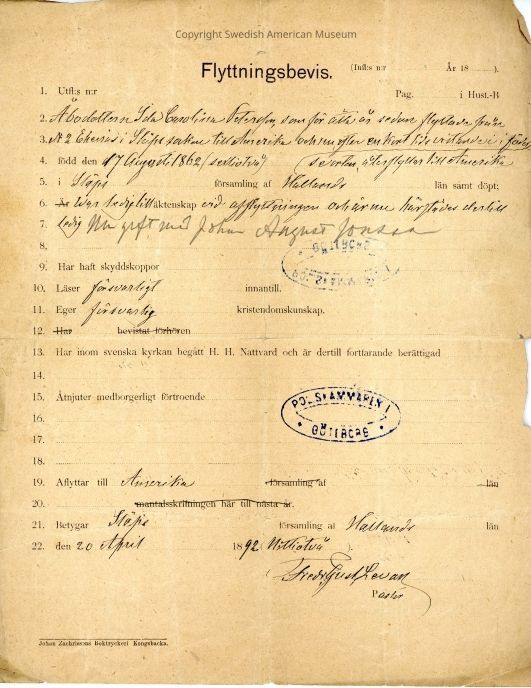 Copyright Swedish American Museum
Flyttningsbevis. (Infl: n:r År 18 ).
1. Utfl: n:r Pag. i Hust.-B
2. Åbodottern Ida Carolina Peterson, som för åtta år sedan flyttade från
3. N 2 i Släps socken till Amerika och nu efter en kort tids vistande i
4. född den 17 Augusti 1862 (sextiotvå) sedan återflyttar till Amerika
5. i Släps församling af Hallands län samt döpt;
6. Är war ledig till äktenskap vid afflyttningen och är nu härstädes dertill
7. ledig Nu gift med Johan August Jonsson
8.
9. Har haft skyddskoppor
GÖTEBORG
10. Läser försvarligt innantill.
11. Eger försvarlig kristendomskunskap.
12. Har bevistat förhören
13. Har inom svenska kyrkan begått H. H. Nattvard och är dertill fortfarande berättigad
14.
15. Åtnjuter medborgerligt förtroende
POLISKAMMAREN I
GÖTEBORG
16.
17.
18.
19. Aflyttar till Amerika församling af län
20. mantalsskrifningen här till nästa år.
21. Betygar Släps församling af Hallands län
22. den 20 April 1892 (Nittiotvå ).
Fredr Gust Levan
Pastor
Johan Zachrissons Boktryckeri Kongsbacka.